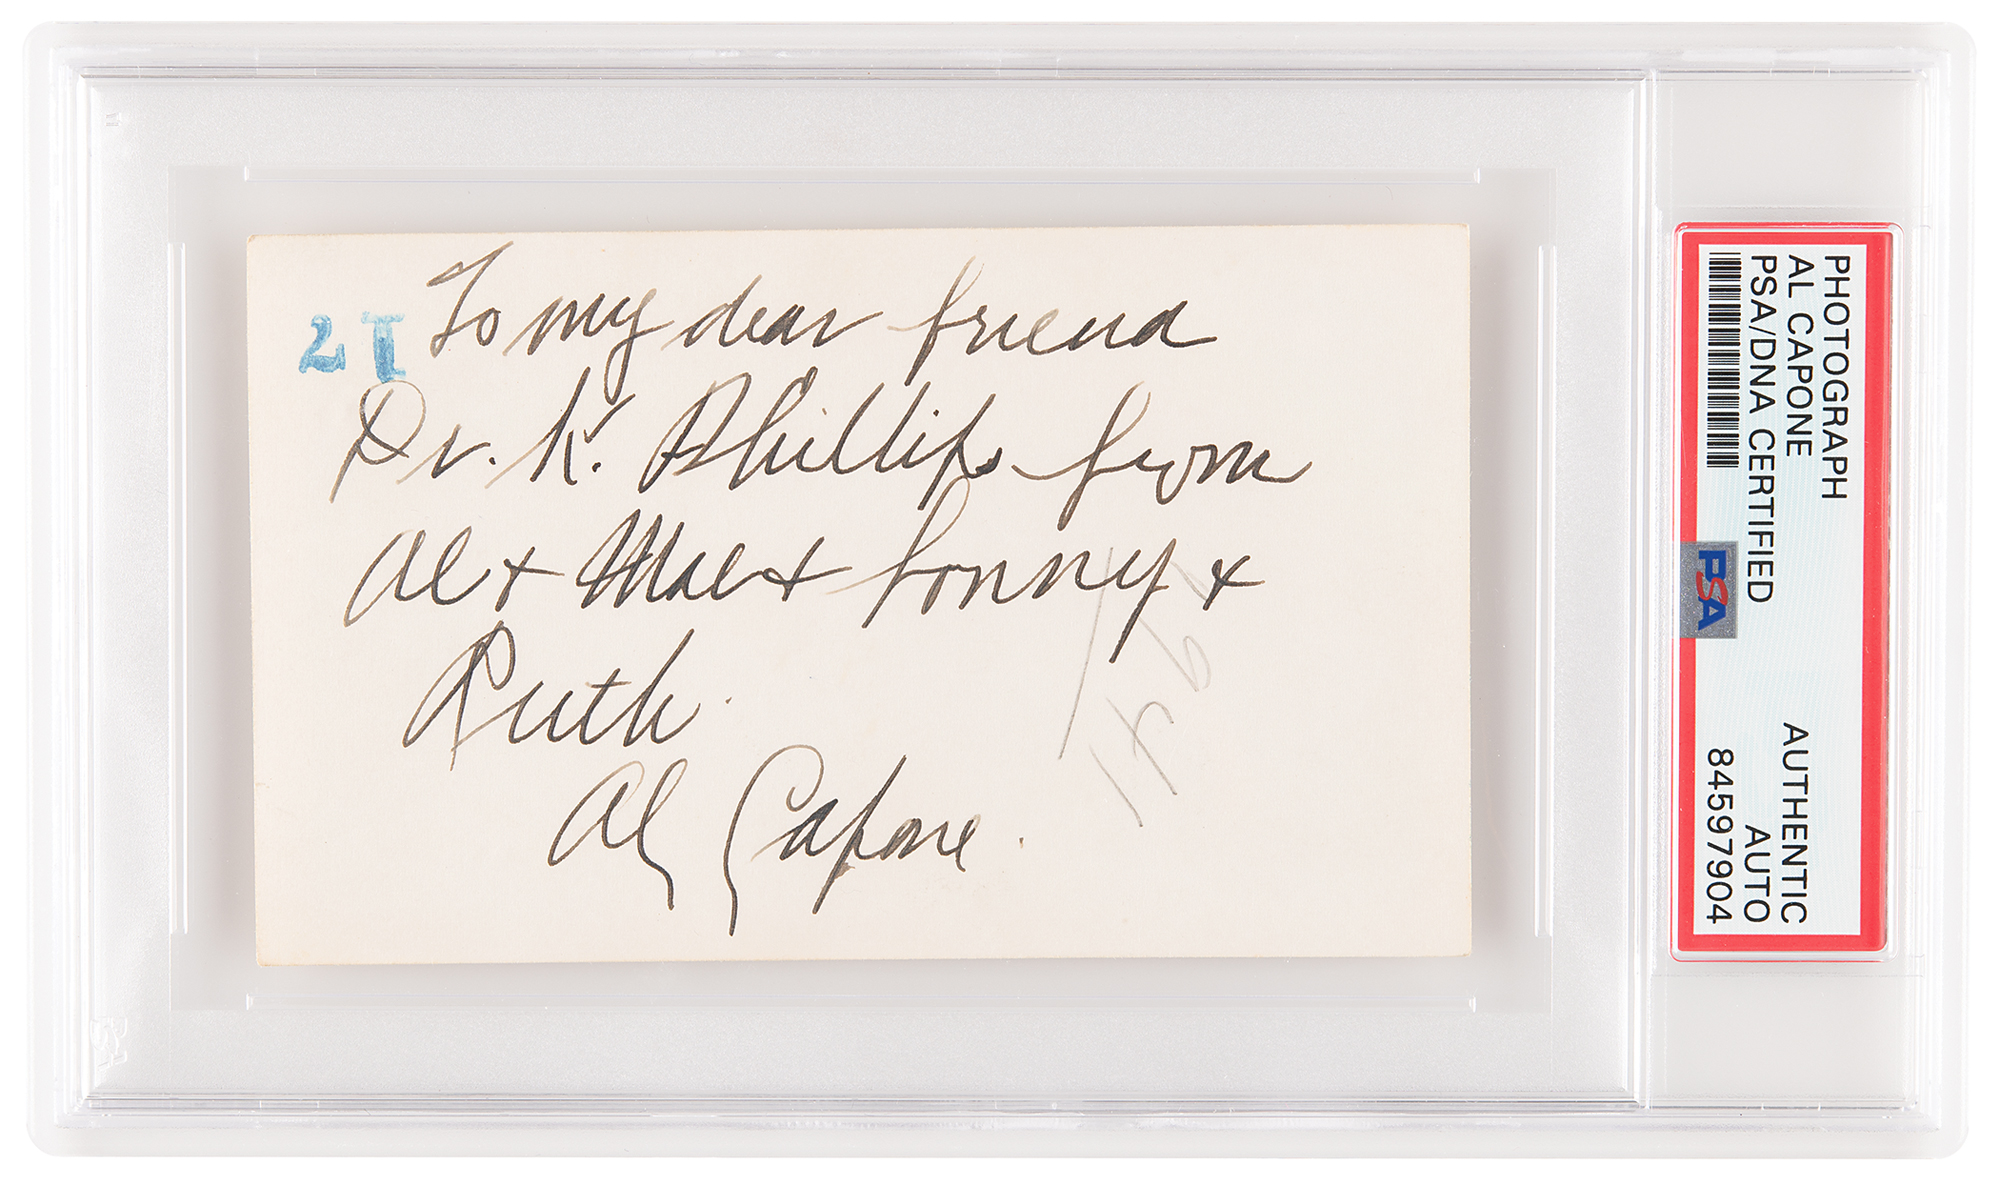 To my dear friend
Dr. K. Phillips from
Al + Mae + Sonny +
Ruth.
Al Capone.
PHOTOGRAPH
AL CAPONE
PSA/DNA CERTIFIED
AUTHENTIC
AUTO
84597904
PSA